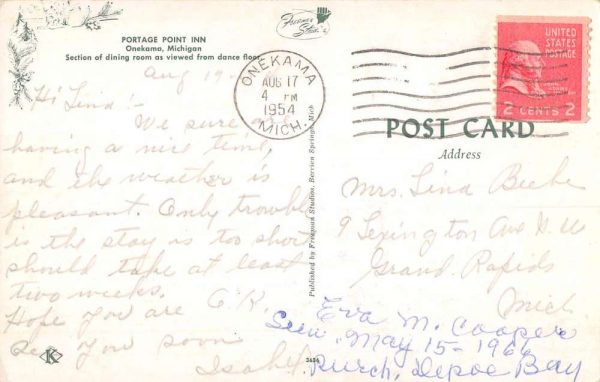 PORTAGE POINT INN
Onekama, Michigan
Section of dining room as viewed from dance floor
Aug 17-
Hi Lind!-
We sure are
having a nice time,
and the weather is
pleasant. Only trouble
is the stay is too short
should take at least
two weeks.
Hope you are O'K.
See you soon
Isabel
ONEKAMA
AUG 17
4 PM
1954
MICH.
Published by Freeman Studios, Berrien Springs, Mich
3636
K
UNITED
STATES
POSTAGE
2 CENTS 2
POST CARD
Address
Mrs. Lind Beebe
9 Lexington Ave N.W
Grand Rapids
Mich
Eva M. Cooper
Sun. May 15-1966
Purch. Depoe Bay